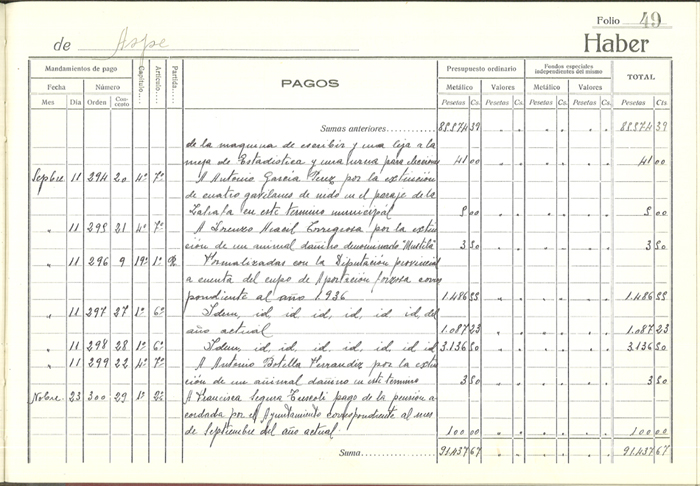 Folio 49
de Aspe Haber
Mandamientos de pago Capítulo Artículo Partida PAGOS Presupuesto ordinario Fondos especiales independientes del mismo TOTAL
Fecha Número Metálico Valores Metálico Valores
Mes Día Orden Concepto Pesetas Cs. Pesetas Cs. Pesetas Cs. Pesetas Cs. Pesetas Cts
Sumas anteriores 88.874 39 88.874 39
de la maquina de escribir y una leja a la
mesa de Estadistica y una urna para eleccion 41 00 41 00
Sepbre. 11 294 20 4º 7º A Antonio García Perez por la extinción
de cuatro gavilanes de nido en el paraje de la
en este termino municipal 5 00 5 00
" 11 295 21 4º 7º A Lorenzo por la extin
ción de un animal dañino denominado "Mustela" 3 50 3 50
" 11 296 9 19º 1º Formalizadas con la Diputación provincial
a cuenta del cupo de Aportación forzosa corres
pondiente al año 1.936 1.486 55 1.486 55
" 11 297 27 1º 6º Idem, id, id, id, id, id, del
año actual 1.087 23 1.087 23
" 11 298 28 1º 6º Idem, id, id, id, id, id, id 3.136 50 3.136 50
" 11 299 22 4º 7º A Antonio Botella Ferrandiz por la extin
ción de un animal damino en este termino 3 50 3 50
Nobre. 23 300 29 1º A Francisca Segura pago de la pensión a
cordada por el Ayuntamiento correspondiente al mes
de Septiembre del año actual 100 00 100 00
Suma 91.437 67 91.437 67